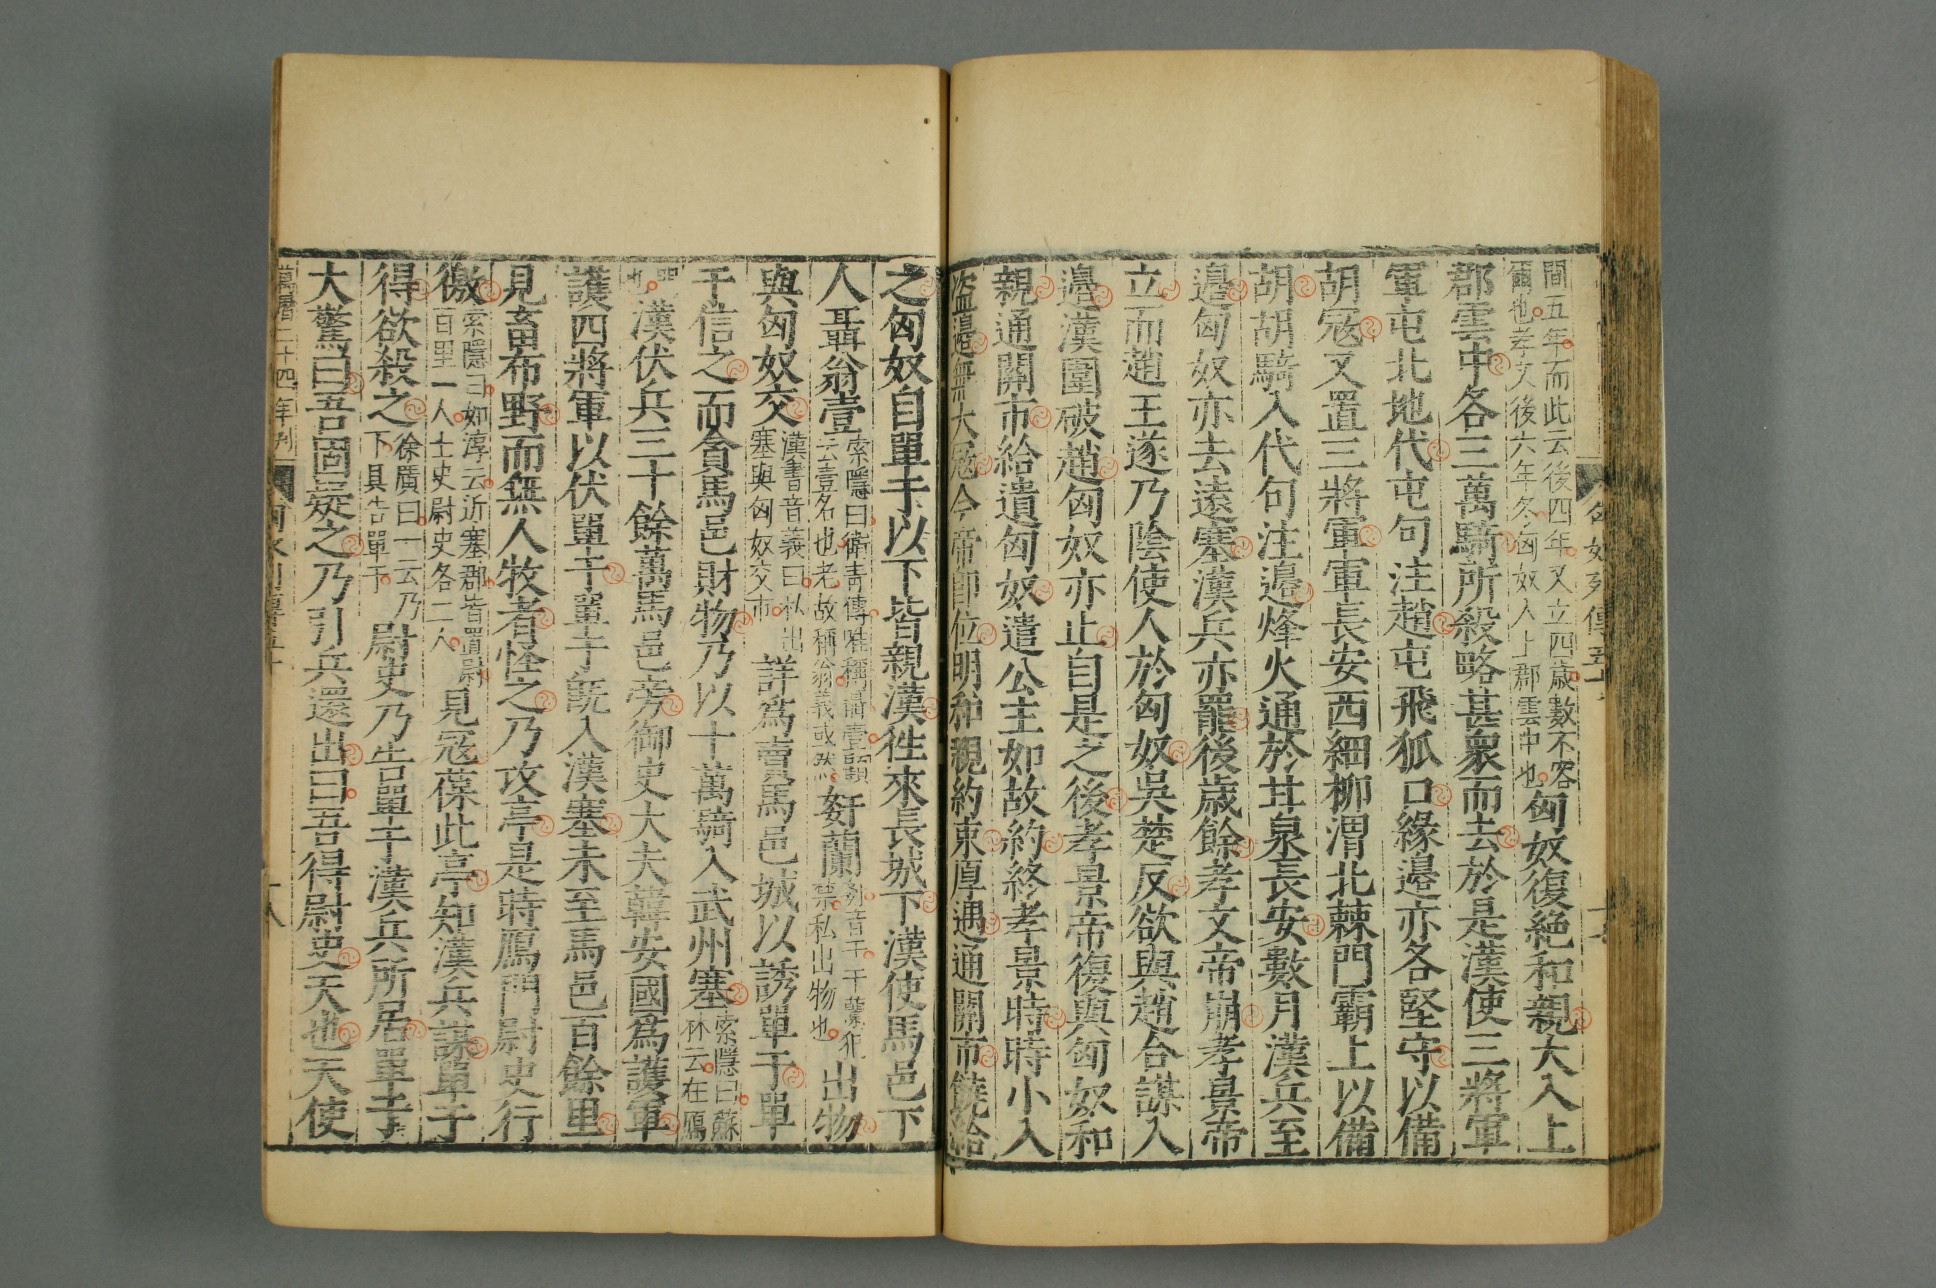 匈奴列傳五十
間五年而此云後四年又立四歲數不容
爾也孝文後六年冬匈奴入上郡雲中也
匈奴復絶和親大入上
郡雲中各三萬騎所殺略甚衆而去於是漢使三將軍
軍屯北地代屯句注趙屯飛狐口緣邉亦各堅守以備
胡冦又置三將軍軍長安西細柳渭北棘門霸上以備
胡胡騎入代句注邉烽火通於甘泉長安數月漢兵至
邉匈奴亦去遠塞漢兵亦罷後歲餘孝文帝崩孝景帝
立而趙王遂乃陰使人於匈奴吳楚反欲與趙合謀入
邉漢圍破趙匈奴亦止自是之後孝景帝復與匈奴和
親通關市給遺匈奴遣公主如故約終孝景時時小入
盜邉無大冦今帝即位明和親約束厚遇通關市饒給
之匈奴自單于以下皆親漢徃來長城下漢使馬邑下
人聶翁壹
索隱曰衛青傳唯稱聶壹顧
云壹名也老故稱翁義或然
奸蘭
奸音干干蘭犯
禁私出物也
出物
與匈奴交
漢書音義曰私出
塞與匈奴交市
詳爲賣馬邑城以誘單于單
于信之而貪馬邑財物乃以十萬騎入武州塞
索隱曰蘇
林云在鴈
門
也
漢伏兵三十餘萬馬邑旁御史大夫韓安國爲護軍
護四將軍以伏單于單于既入漢塞未至馬邑百餘里
見畜布野而無人牧者怪之乃攻亭是時鴈門尉史行
徼
索隱曰如淳云近塞郡皆置尉
百里一人士史尉史各二人
見冦葆此亭知漢兵謀單于
得欲殺之
徐廣曰一云乃
下具告單于
尉史乃告單于漢兵所居單于
大驚曰吾固疑之乃引兵還出曰吾得尉史天也天使
萬曆二十四年刋
匈奴列傳五十
十八